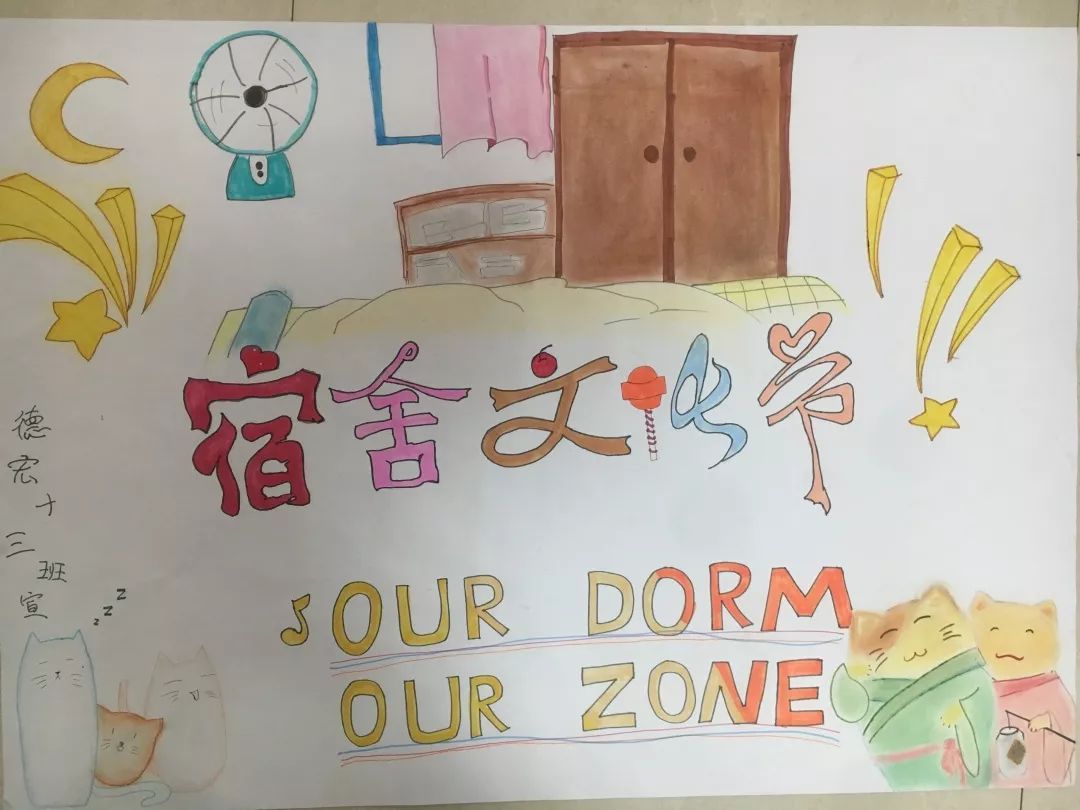 宿舍文化节
德宏十三班宣
z
z
z
OUR DORM
OUR ZONE